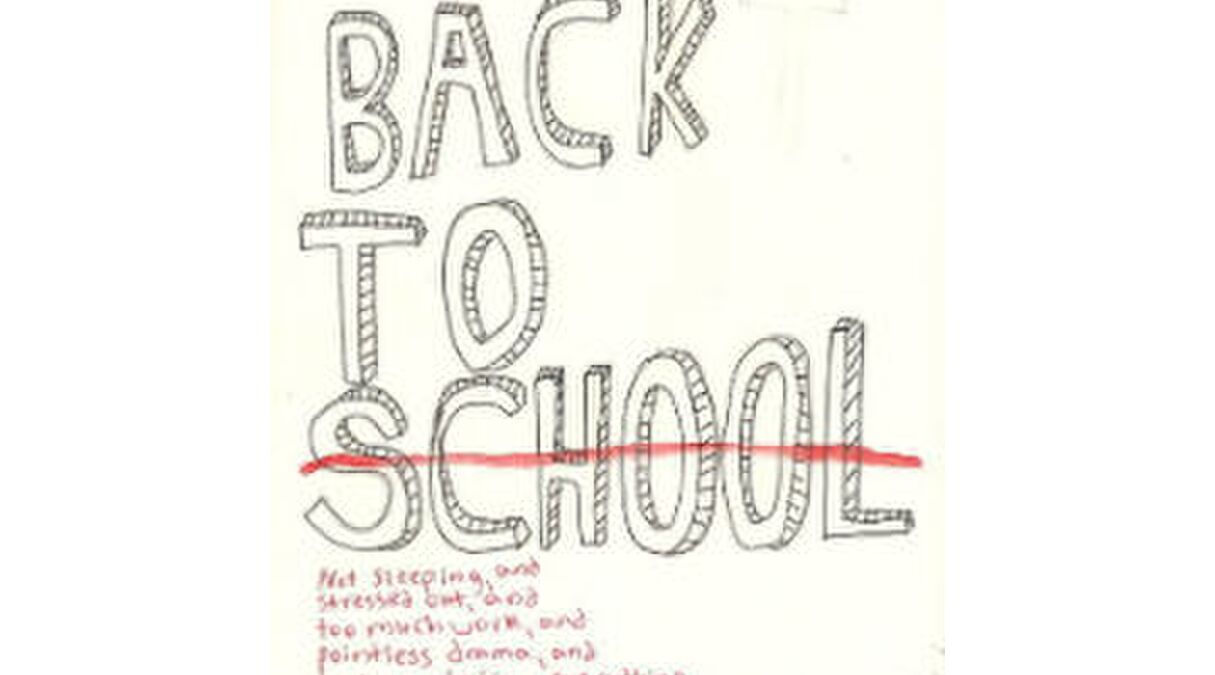 BACK
TO
SCHOOL
Not sleeping, and
stressed out, and
too much work, and
pointless drama, and